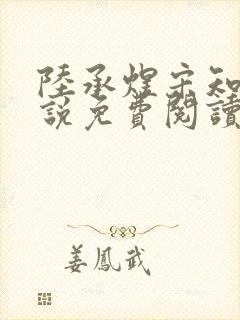 陸承煌宋知
說免費閱讀
姜鳳武